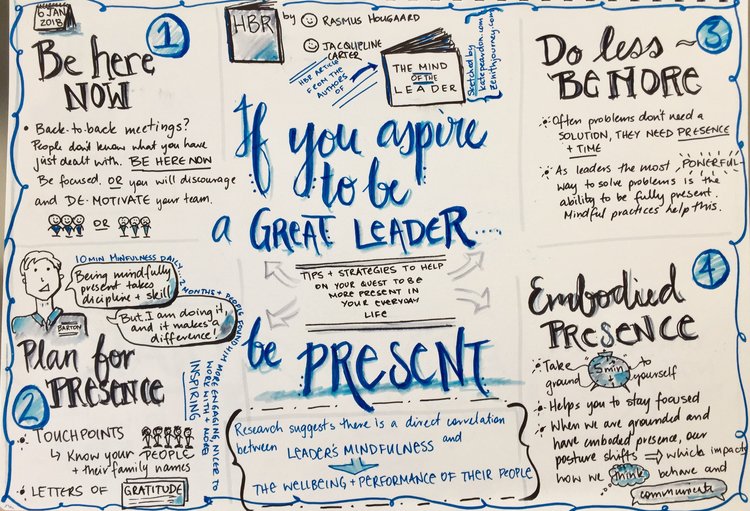 6 JAN
2018
1
Be here
NOW
• Back-to-back meetings?
People don't know what you have
just dealt with. BE HERE NOW
Be focused, OR you will discourage
and DE-MOTIVATE your team.
OR
HBR
by
RASMUS HOUGAARD
JACQUELINE
CARTER
HBR ARTICLE
FROM THE
AUTHORS
OF
THE MIND
OF THE
LEADER
Sketched by
katepeardon.com
zenithjourney.com
If you aspire
to be
a GREAT LEADER....
TIPS + STRATEGIES TO HELP
ON YOUR QUEST TO BE
MORE PRESENT IN
YOUR EVERYDAY
LIFE
be PRESENT
Research suggests there is a direct correlation
between LEADER'S MINDFULNESS and
THE WELLBEING + PERFORMANCE OF THEIR PEOPLE
10 MIN MINFULNESS DAILY, 2 MONTHS + PEOPLE FOUND HIM
MORE ENGAGING, NICER TO
WORK WITH + MORE
INSPIRING
Being mindfully
present takes
discipline + skill
But I am doing it,
and it makes a
difference!
BARTON
Plan for
PRESENCE
2
TOUCHPOINTS
↳ Know your PEOPLE
+ their family names
LETTERS OF GRATITUDE
3
Do less ~
BE MORE
Often problems don't need a
SOLUTION, THEY NEED PRESENCE
+ TIME
As leaders the most POWERFUL
way to solve problems is the
ability to be fully present.
Mindful practices help this.
4
Embodied
PRESENCE
Take 5 min + to
ground yourself
Helps you to stay focused
When we are grounded and
have emboded presence, our
posture shifts ⇒ which impacts
how we think behave and
communicate